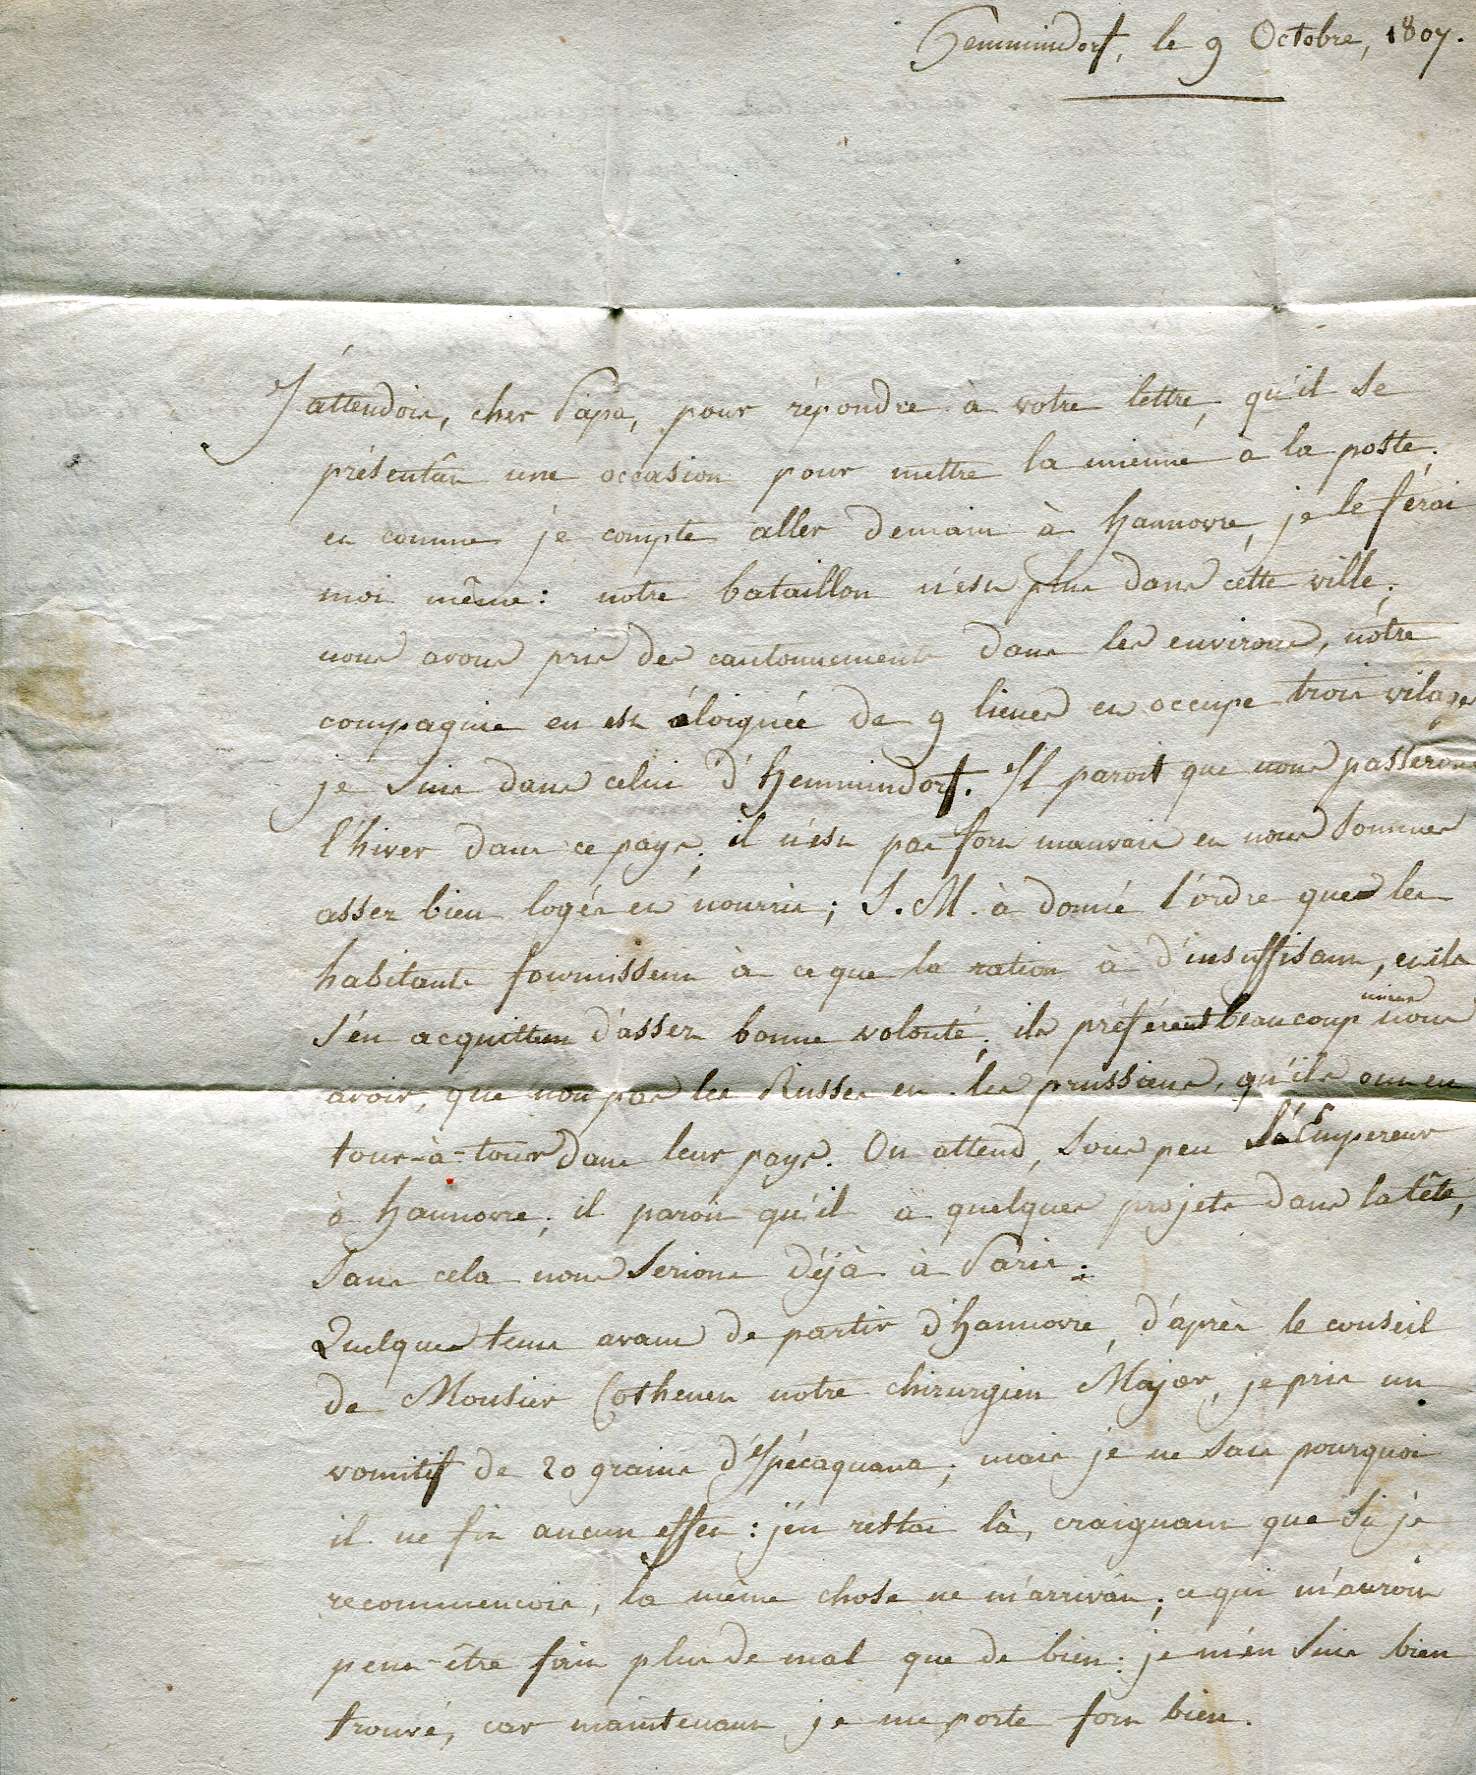 Hemmindorf, le 9 Octobre, 1807.
J'attendois, cher Papa, pour répondre à votre lettre, qu'il se
présentât une occasion pour mettre la mienne à la poste.
et comme je compte aller demain à Hannovre, je le ferai
moi même : notre bataillon n'est plus dans cette ville ;
nous avons pris des cantonnements dans les environs, nôtre
compagnie en est éloignée de 9 lieues et occupe trois vilages
je suis dans celui d'Hemmindorf. Il paroit que nous passerons
l'hiver dans ce pays ; il n'est pas fort mauvais et nous sommes
assez bien logés et nourris ; S. M. à donné l'ordre que les
habitants fournissent à ce que la ration à d'insuffisant, et ils
s'en acquittent d'assez bonne volonté ; ils préférent beaucoup mieux nous
avoir, que non pas les Russes et les prussiens, qu'ils ont eu
tour-à-tour dans leur pays. On attend, sous peu l'Empereur
à hannovre ; il paroit qu'il a quelques projets dans la tête,
sans cela nous serions déjà à Paris.
Quelques tems avant de partir d'hannovre, d'après le conseil
de Monsier Cothenet notre chirurgien Major, je pris un
vomitif de 20 grains d'Ypécaquana ; mais je ne sais pourquoi
il ne fit aucun effet : j'en restai là, craignant que si je
recommençois, la même chose ne m'arrivât ; ce qui m'auroit
peut-être fait plus de mal que de bien : je m'en suis bien
trouvé, car maintenant je me porte fort bien.